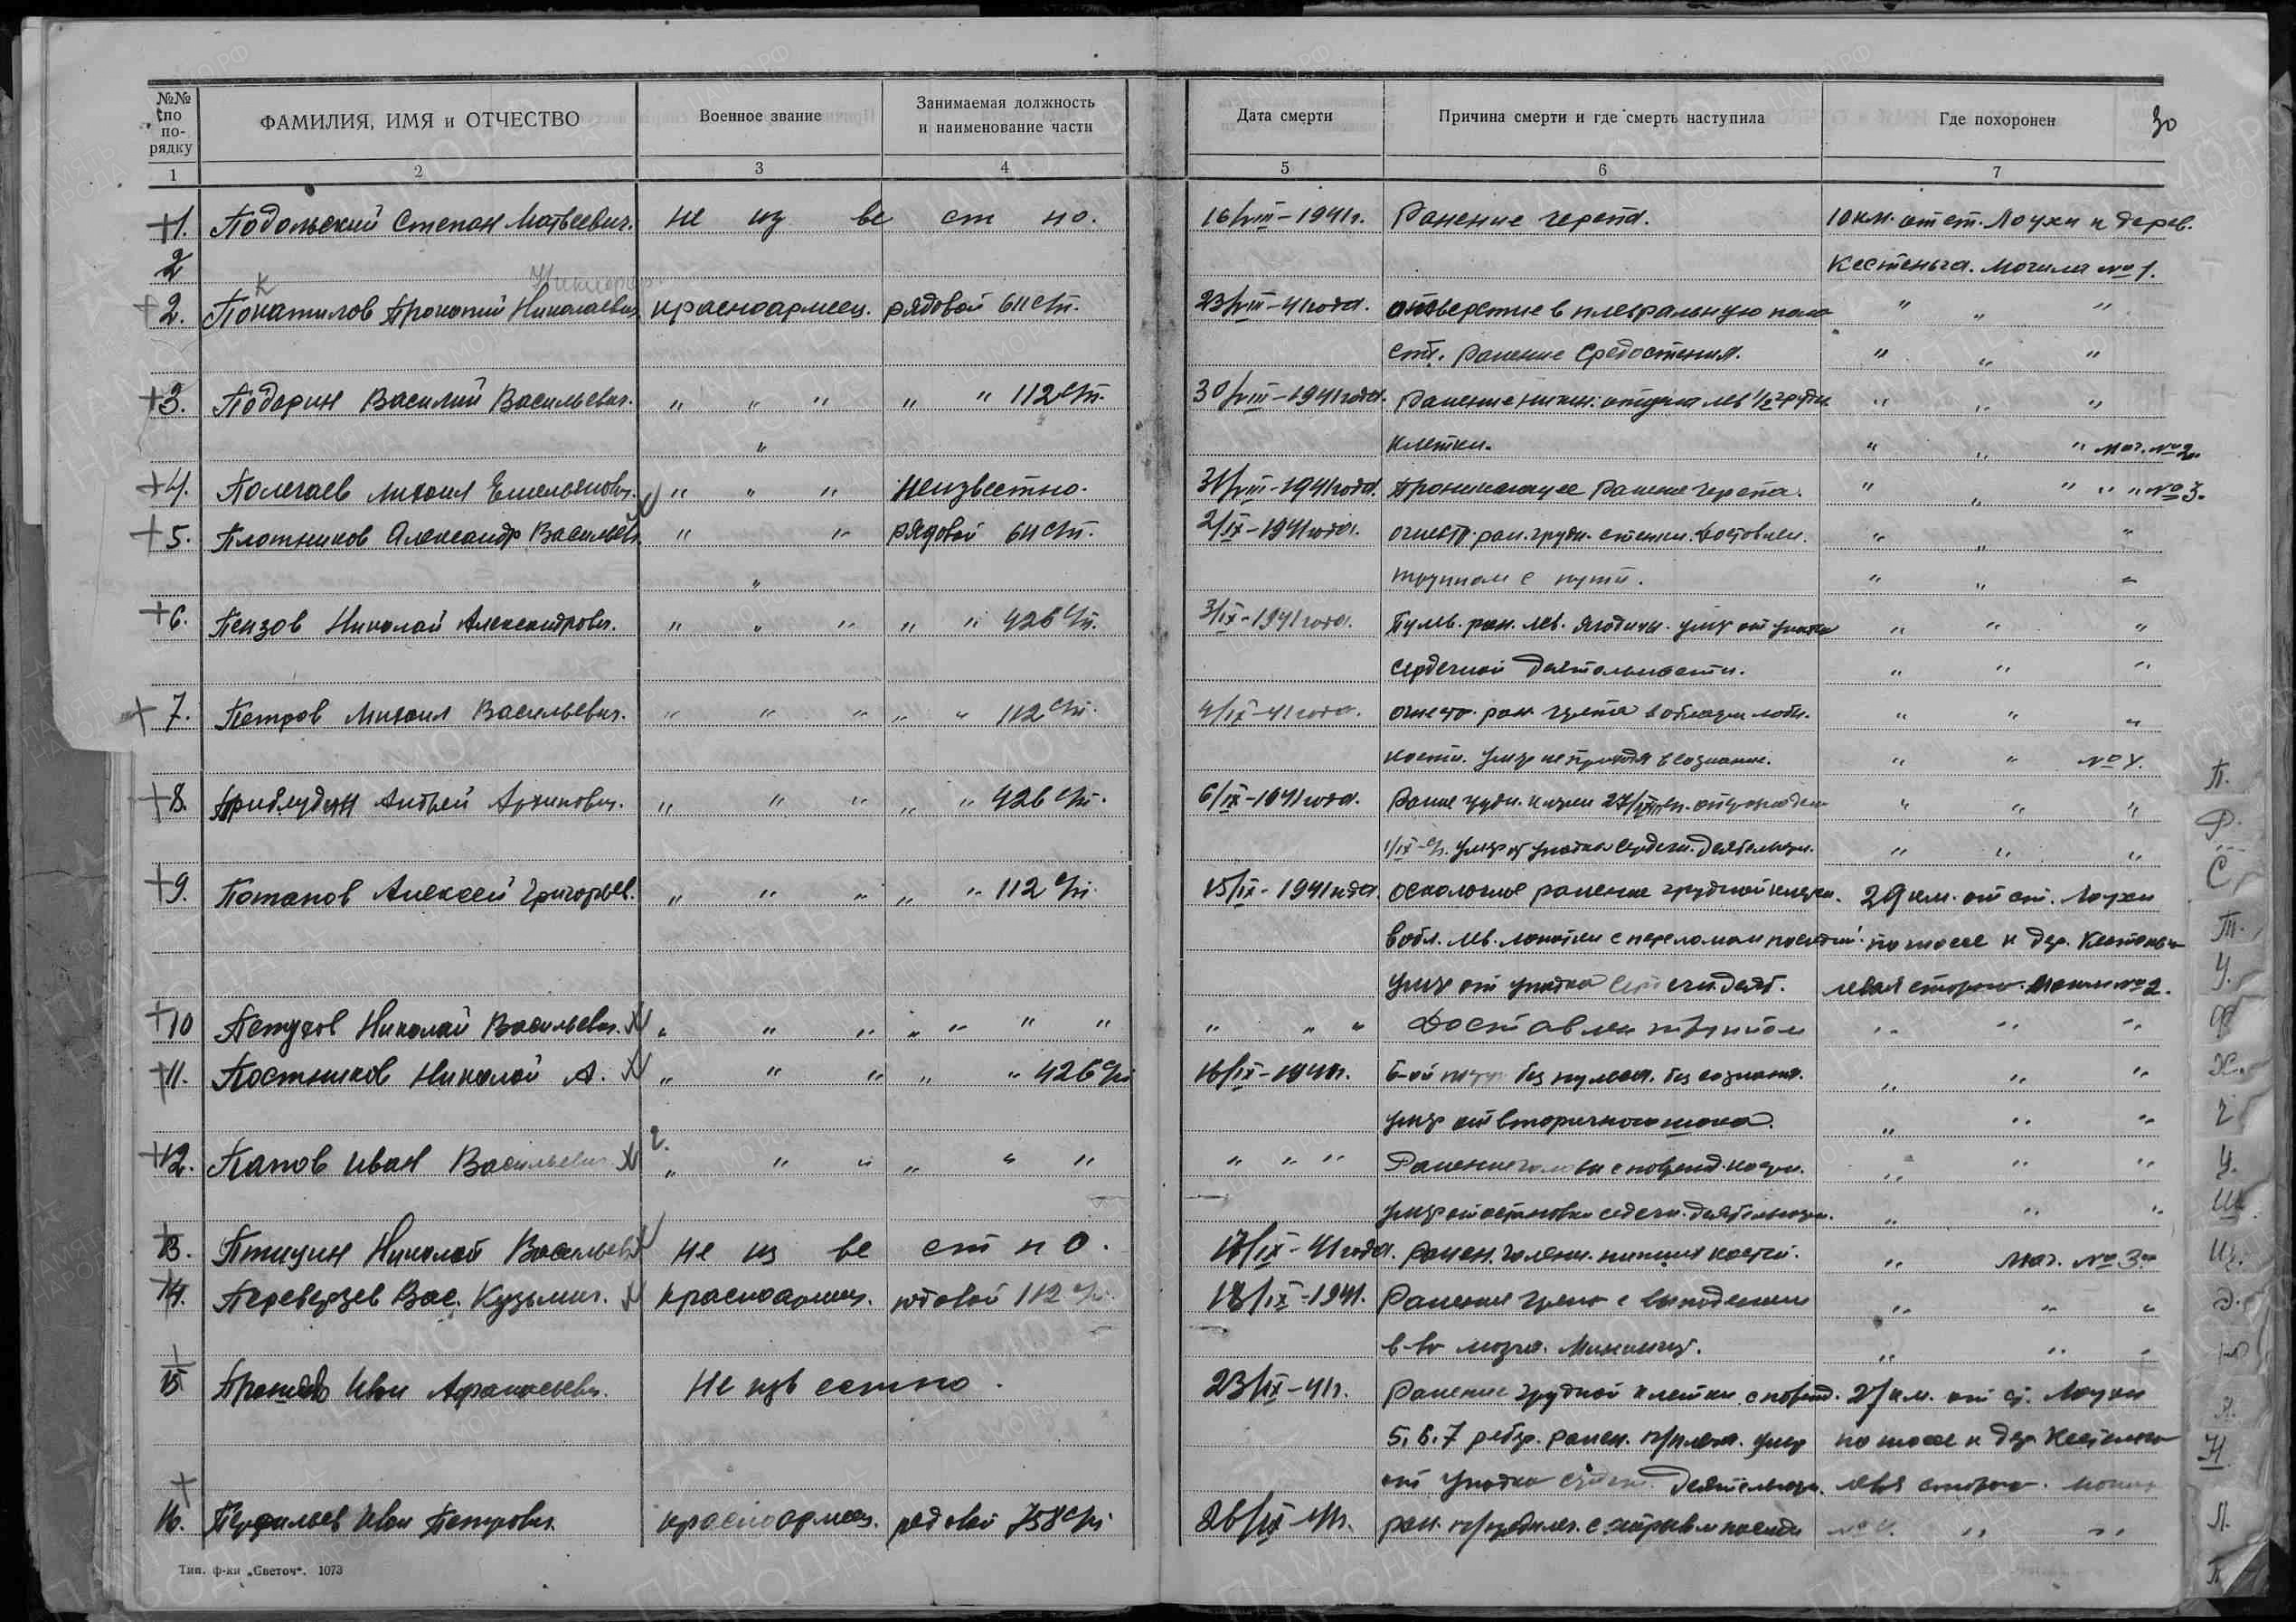 №№ по по- рядку
ФАМИЛИЯ, ИМЯ и ОТЧЕСТВО
Военное звание
Занимаемая должность и наименование части
Дата смерти
Причина смерти и где смерть наступила
Где похоронен
30
1 2 3 4 5 6 7
+1. Подольский Степан Матвеевич. не из ве ст но. 16/VIII-1941г. Ранение черепа. 10 км. от ст. Лоухи к дерев.
2 Кестеньга. Могила №1.
+2. Покатилов Прокопий Николаевич красноармеец. рядовой 611 с/п. 23/VIII-41 года. отверстие в плевральную поло " " "
сть. Ранение Средостения. " " "
+3. Подорин Василий Васильевич. " " " " " 112 с/п. 30/VIII-1941 года. Ранение нижн. отдела лев 1/2 грудн. " " "
" клетки. " " " мог. №2.
+4. Полегаев Михаил Емельянович. " " " Неизвестно. 31/VIII-1941 года. Проникающее Ранение черепа. " " " " " №3.
+5. Плотников Александр Васильев. " " рядовой 611 с/п. 2/IX-1941 года. огнестр. ран. грудн. стенки. Доставлен. " " "
" трупом с пути. " " "
+6. Пензов Николай Александрович. " " " " " 426 с/п. 3/IX-1941 года. Пулев. ран. лев. ягодицы. умер от упадка " " "
сердечной деятельности. " " "
+7. Петров Михаил Васильевич. " " " " " 112 с/п. 4/IX-41 года. огнестр. ран. черепа в области лобн. " " "
кости. Умер не приходя в сознание. " " №4.
+8. Приблудин Андрей Архипович. " " " " " 426 с/п. 6/IX-1941 года. Ранен грудн. клетки 27/VIII " " "
1/IX умер от упадка сердечн. деятельности. " " "
+9. Потапов Алексей Григорьев. " " " " " 112 с/п. 15/IX-1941 года. осколочное ранение грудной клетки. 29 км. от ст. Лоухи
в обл. лев. лопатки с переломом последней. по шоссе к дер. Кестеньга
умер от упадка сердечн. деят. левая сторона. Могила №2.
+10 Петухов Николай Васильевич. " " " " " " " " " " Доставлен трупом " " "
+11. Постников Николай А. " " " " " 426 с/п 16/IX-1941г. без пульса. без сознания. " " "
умер от вторичного шока. " " "
+12. Попов Иван Васильевич " " " " " " " " " Ранение головы с поврежд. кости. " " "
умер от остановки сердечн. деятельности. " " "
+13. Птицин Николай Васильев не из ве ст но. 17/IX-41 года. Ранен. голени. нижних костей. " мог. №3.
+14. Переверзев Вас. Кузьмич. красноармеец. рядовой 112 с/п 18/IX-1941. Ранение черепа с выпадением " " "
в-во мозга. " " "
+15 Иван Афанасьевич. Не изв естно. 23/IX-41г. Ранение грудной клетки с поврежд. 27 км. от ст. Лоухи
5, 6, 7 ребер. ранен. умер по шоссе к дер. Кестеньга
от упадка сердечн. деятельности. левая сторона. могила
+16. Перфильев Иван Петрович. красноармеец. рядовой 758 с/п 26/IX-41г. №4. " "
П.
Р.
С.
Т.
У.
Ф
Х.
Ч
Ц.
Ш
Щ.
Э.
Ю
Я.
Н
Л.
П
Тип. ф-ки „Светоч“. 1073